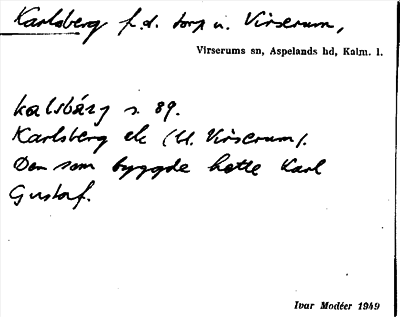 Karlsberg f.d. torp u. Virserum,
Virserums sn, Aspelands hd, Kalm. l.
kalsbárj s. 89.
Karlsberg ek (U. Virserum).
Den som byggde hette Karl
Gustaf.
Ivar Modéer 1949